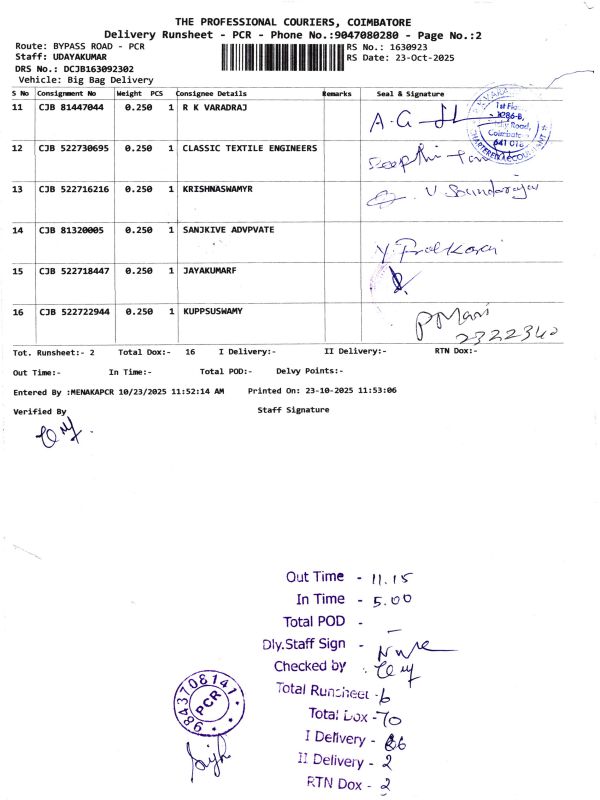 THE PROFESSIONAL COURIERS, COIMBATORE
Delivery Runsheet - PCR - Phone No.:9047080280 - Page No.:2
Route: BYPASS ROAD - PCR
RS No.: 1630923
Staff: UDAYAKUMAR
RS Date: 23-Oct-2025
DRS No.: DCJB163092302
Vehicle: Big Bag Delivery
S No Consignment No Weight PCS Consignee Details Remarks Seal & Signature
11 CJB 81447044 0.250 1 R K VARADRAJ
1st Floor,
Coimbatore
641 018
CHARTERED ACCOUNTANT
12 CJB 522730695 0.250 1 CLASSIC TEXTILE ENGINEERS
13 CJB 522716216 0.250 1 KRISHNASWAMYR V Soundarajan
14 CJB 81320005 0.250 1 SANJKIVE ADVPVATE
15 CJB 522718447 0.250 1 JAYAKUMARF
16 CJB 522722944 0.250 1 KUPPSUSWAMY P Mari
2322340
Tot. Runsheet:- 2 Total Dox:- 16 I Delivery:- II Delivery:- RTN Dox:-
Out Time:- In Time:- Total POD:- Delvy Points:-
Entered By :MENAKAPCR 10/23/2025 11:52:14 AM Printed On: 23-10-2025 11:53:06
Verified By Staff Signature
Out Time - 11.15
In Time - 5.00
Total POD - -
Dly.Staff Sign -
Checked by
Total Runsheet - 6
Total Dox - 70
I Delivery - 66
II Delivery - 2
RTN Dox - 2
9843708141
PCR